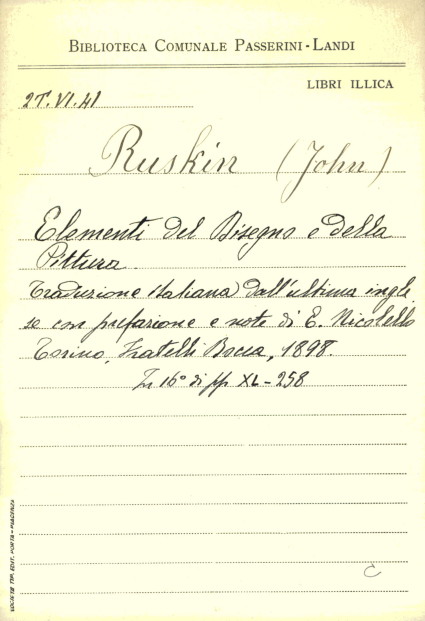 BIBLIOTECA COMUNALE PASSERINI-LANDI
LIBRI ILLICA
2T.VI.41
Ruskin (John)
Elementi del Disegno e della
Pittura.
Traduzione italiana dall'ultima ingle
se con prefazione e note di E. Nicolello
Torino, Fratelli Bocca, 1898.
In 16° di pp XL-258
C
SOCIETÀ TIP. EDIT. PORTA-PIACENZA